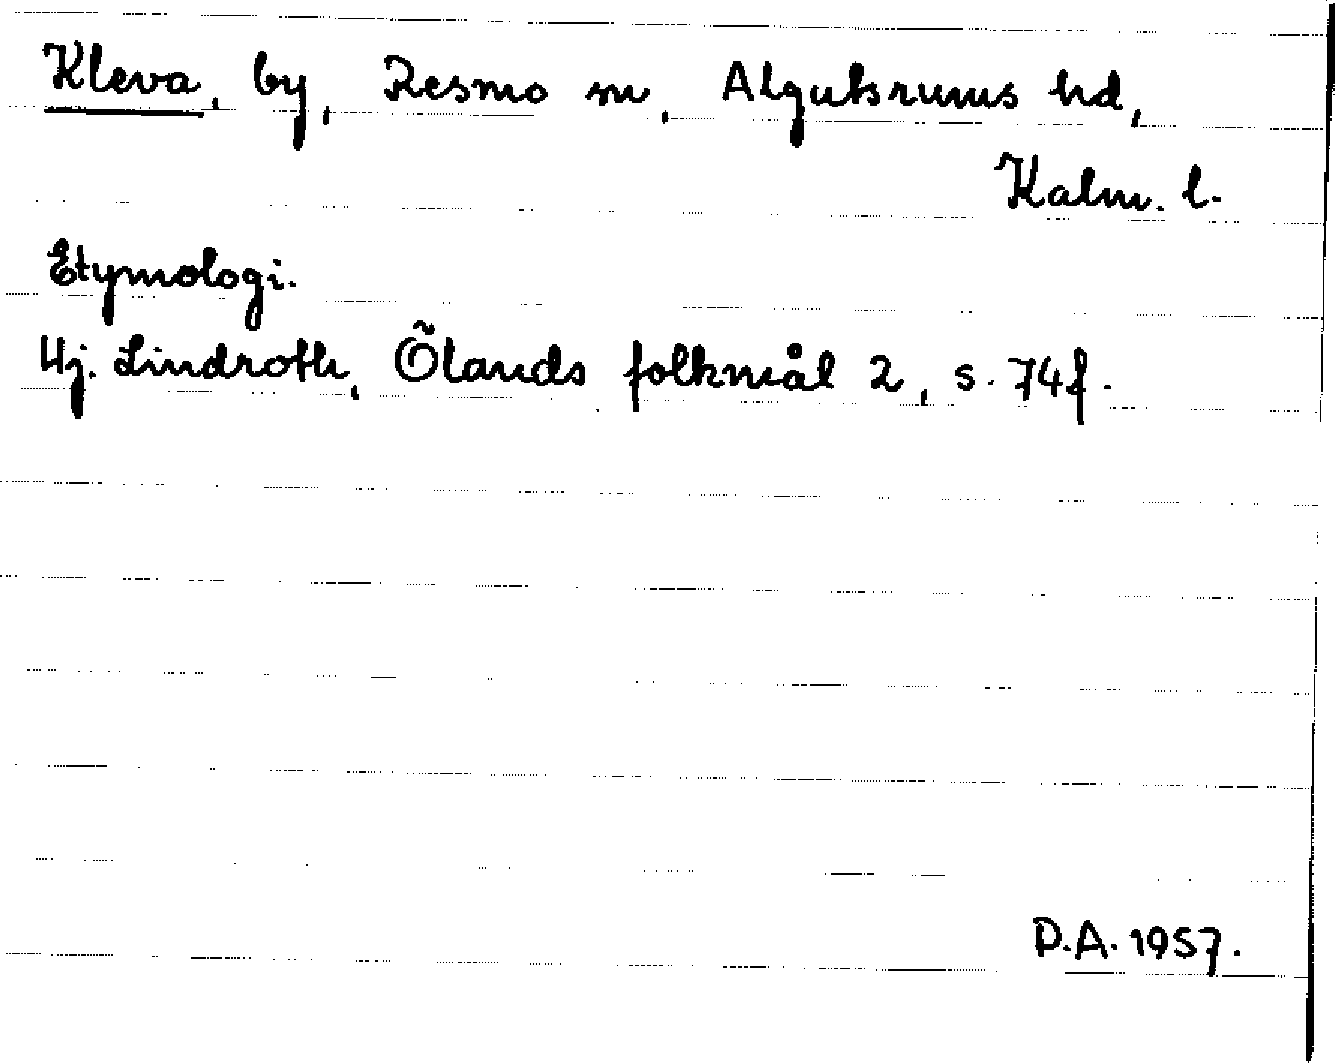 Kleva, by, Resmo sn, Algutsrums hd,
Kalm. l.
Etymologi.
Hj. Lindroth, Ölands folkmål 2, s. 74f.
D.A. 1957.